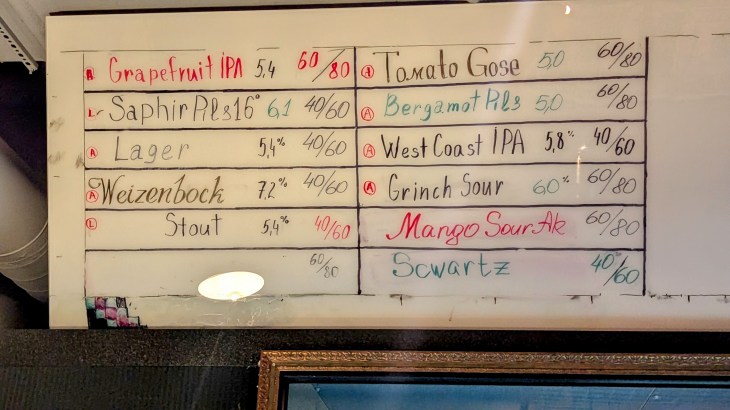 A Grapefruit IPA 5,4 60/80
L Saphir Pils 16° 6,1 40/60
A Lager 5,4% 40/60
A Weizenbock 7,2% 40/60
L Stout 5,4% 40/60
60/80
A Tomato Gose 5,0 60/80
A Bergamot Pils 5,0 60/80
A West Coast IPA 5,8% 40/60
A Grinch Sour 6,0% 60/80
Mango Sour Ak 60/80
Scwartz 40/60